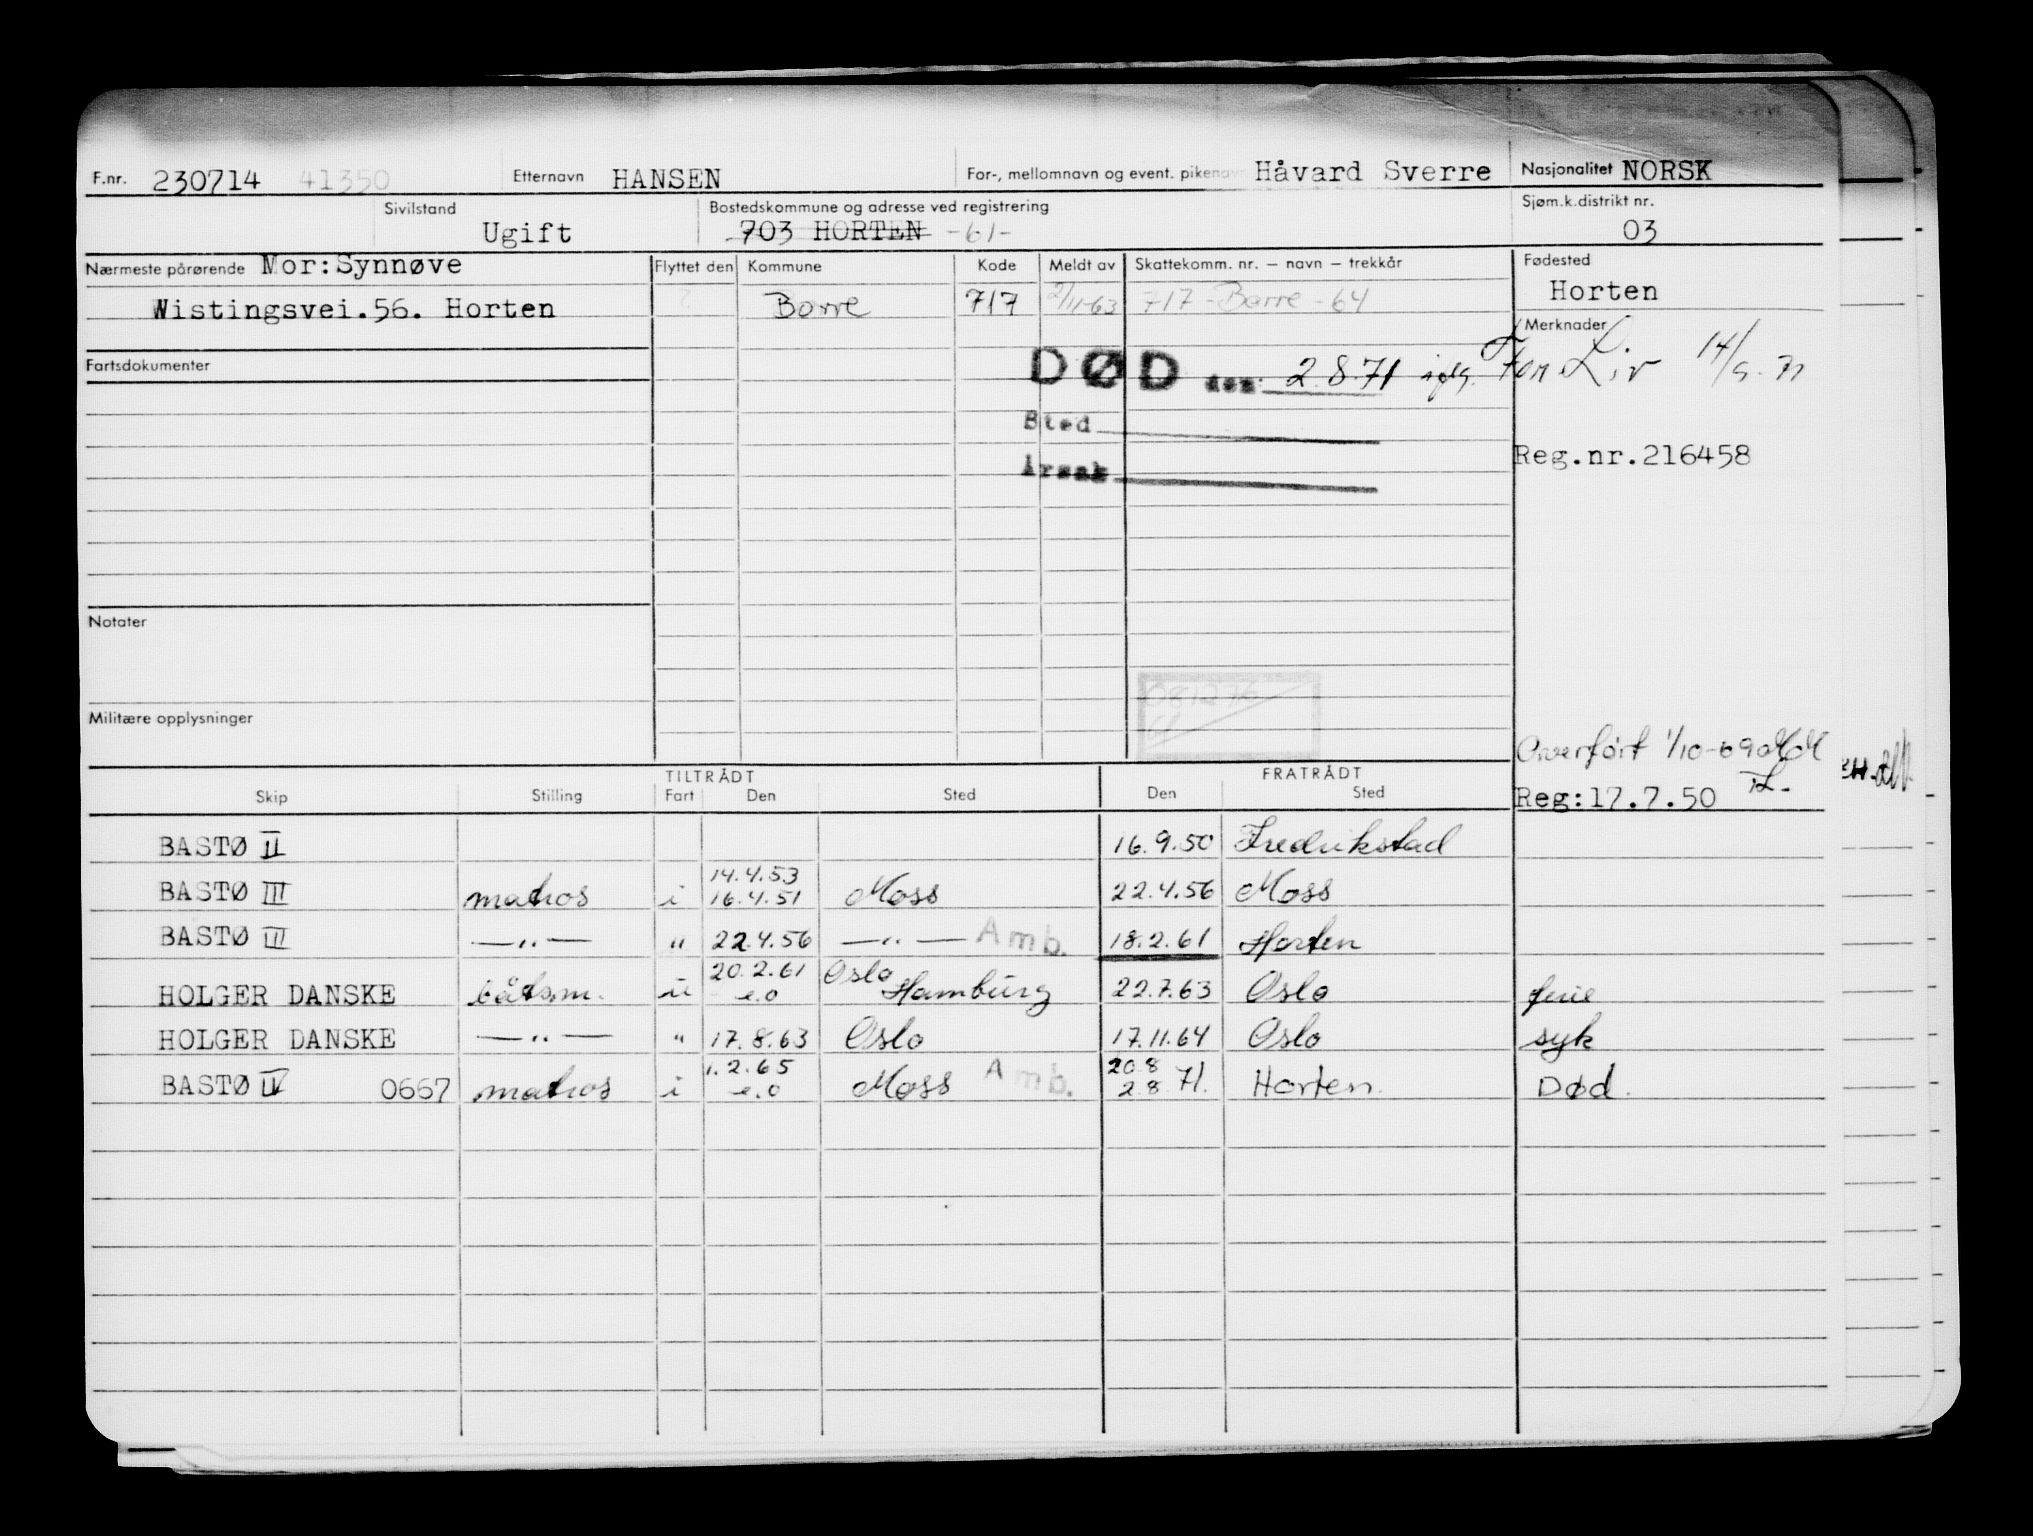 F.nr. 230714 41350 Etternavn HANSEN For-, mellomnavn og event. pikenavn Håvard Sverre Nasjonalitet NORSK
Sivilstand Ugift Bostedskommune og adresse ved registrering 703 HORTEN -61- Sjøm.k.distrikt nr. 03
Nærmeste pårørende Mor:Synnøve Flyttet den Kommune Kode Meldt av Skattekomm. nr. – navn – trekkår Fødested
Wistingsvei.56. Horten ? Borre 717 2/11-63 717 - Borre - 64 Horten
Merknader
Fartsdokumenter DØD den: 2.8.71 iflg. Fon Liv 14/9.71
Sted
Årsak Reg.nr.216458
Notater
081276
Militære opplysninger
Overført 1/10-69
Reg:17.7.50
TILTRÅDT FRATRÅDT
Skip Stilling Fart Den Sted Den Sted
BASTØ II 16.9.50 Fredrikstad
14.4.53
BASTØ III matros i 16.4.51 Moss 22.4.56 Moss
BASTØ III —„— „ 22.4.56 —„— Amb. 18.2.61 Horten
20.2.61 Oslo
HOLGER DANSKE båtsm. u e.o Hamburg 22.7.63 Oslo ferie
HOLGER DANSKE —„— „ 17.8.63 Oslo 17.11.64 Oslo syk
1.2.65 20.8
BASTØ IV 0667 matros i e.o Moss Amb. 2.8 71. Horten. Død.